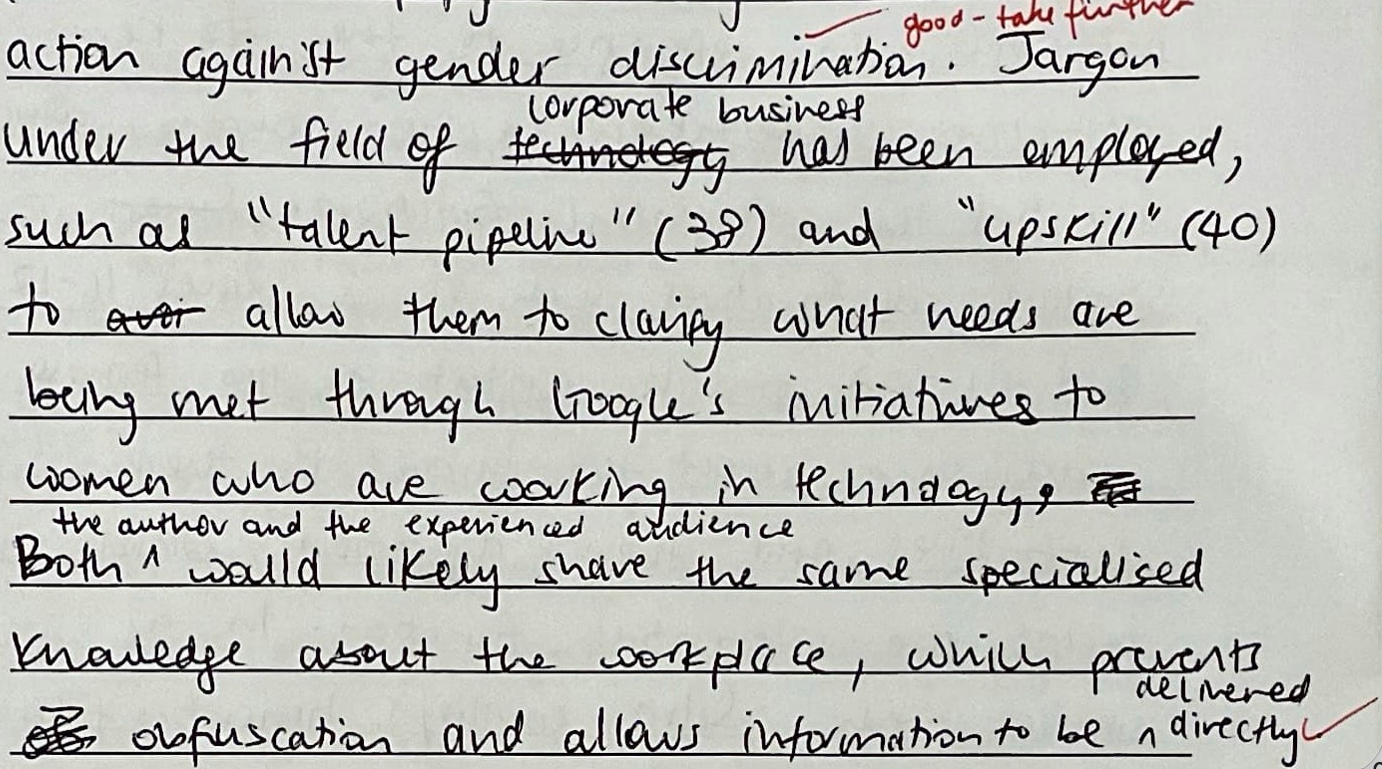 good - take further
action against gender discrimination. Jargon
corporate business
under the field of technology has been employed,
such as "talent pipeline" (38) and "upskill" (40)
to allow them to clarify what needs are
being met through Google's initiatives to
women who are working in technology,
the author and the experienced audience
Both ^ would likely share the same specialised
knowledge about the workplace, which prevents
delivered
obfuscation and allows information to be ^ directly